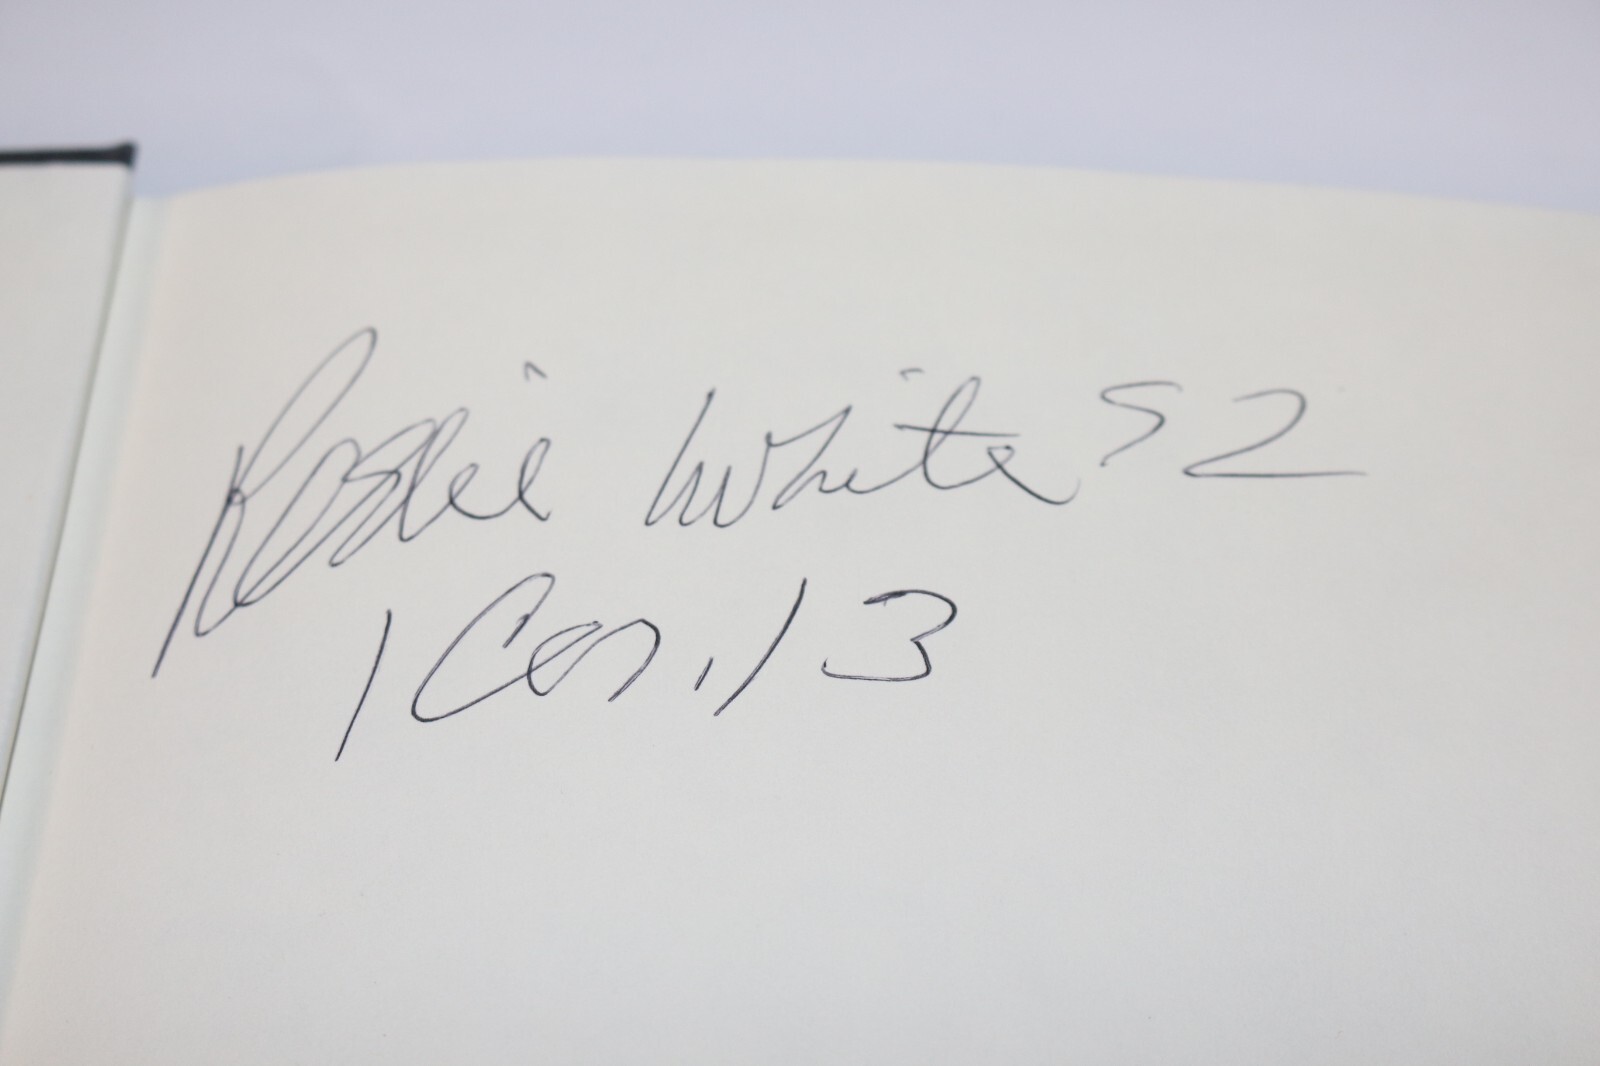 Reggie White 92
1 Cor. 13